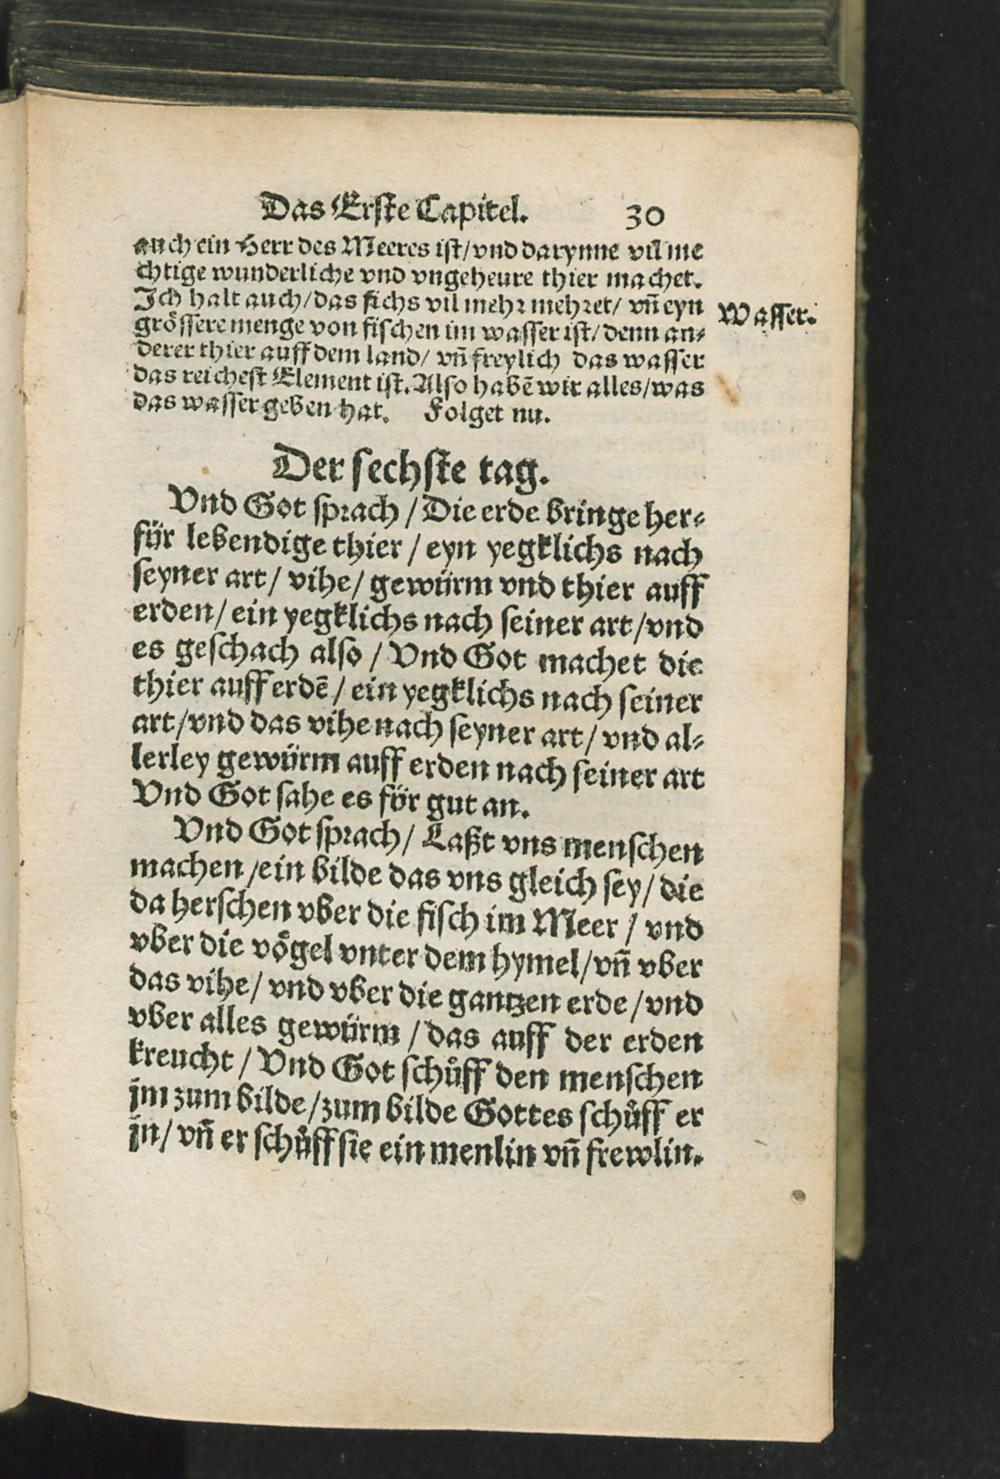 Das Erste Capitel. 30
auch ein Herr des Meeres ist/ vnd darynne vil me
chtige wunderliche vnd vngeheure thier machet.
Ich halt auch/ das sichs vil mehr mehret/ vñ eyn
grössere menge von fischen im wasser ist/ denn an⸗
derer thier auff dem land/ vñ freylich das wasser
das reichest Element ist. Also habẽ wir alles/ was
das wasser geben hat. Folget nu.
Wasser.
Der sechste tag.
Vnd Got sprach / Die erde bringe her⸗
für lebendige thier / eyn yegklichs nach
seyner art/ vihe/ gewürm vnd thier auff
erden/ ein yegklichs nach seiner art/ vnd
es geschach also / Vnd Got machet die
thier auff erdẽ / ein yegklichs nach seiner
art/ vnd das vihe nach seyner art/ vnd al⸗
lerley gewürm auff erden nach seiner art
Vnd Got sahe es för gut an.
Vnd Got sprach/ Laßt vns menschen
machen / ein bilde das vns gleich sey/ die
da herschen vber die fisch im Meer / vnd
vber die vögel vnter dem hymel/ vñ vber
das vihe/ vnd vber die gantzen erde/ vnd
vber alles gewürm / das auff der erden
kreucht / Vnd Got schůff den menschen
jm zum bilde/ zum bilde Gottes schůff er
jn/ vñ er schůff sie ein menlin vñ frewlin.